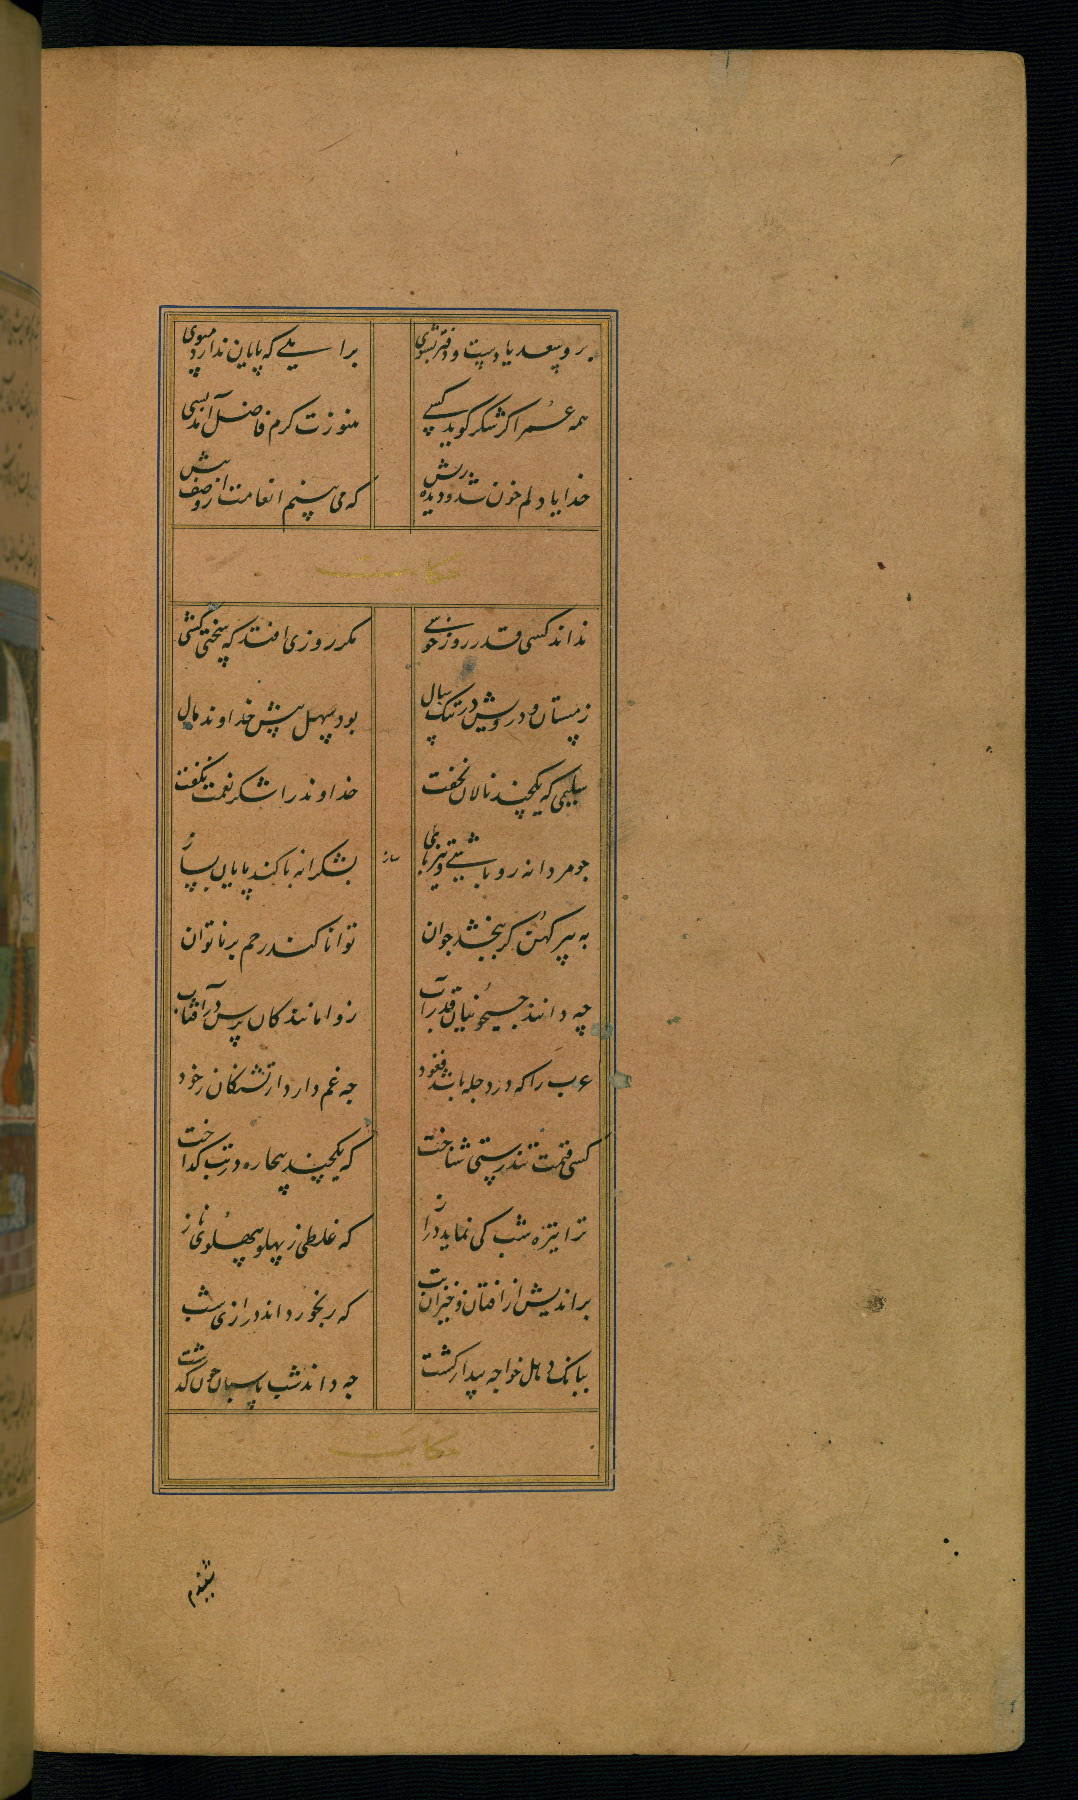 برو سعدیا دست و دفتر بشوی براهی که پایان ندارد مپوی
همه عمر اکر شکر کوید کسی هنوزت کرم فاضل آمد بسی
خدایا دلم خون شد و دیده ریش که می بینم انعامت از وصف بیش
حکایت
نداند کسی قدر روز خوشی مکر روزی افتد که سختی کشی
زمستان و درویش در تنک سال بود سهل پیش خداوند مال
سلیمی که یکچند نالان نخفت خداوند را شکر نعمت نکفت
جو مردانه رو باشی و تیز پای بشکرانه با کند پایان بپای
به پیر کهن کر ببخشد جوان توانا کند رحم بر ناتوان
چه دانند جیحونیان قدر آب ز واماندکان پرس در آفتاب
عرب را که در دجله باشد قعود جه غم دارد از تشنکان زرود
کسی قیمت تندرستی شناخت که یکچند بیچاره در تب کداخت
ترا تیزه شب کی نماید دراز که غلطی ز پهلو بپهلوی ناز
براندیش از افتان و خیزان تب که رنجور داند درازی شب
ببانک دهل خواجه بیدار کشت جه داند شب پاسبان جون کذشت
حکایت
شنیدم